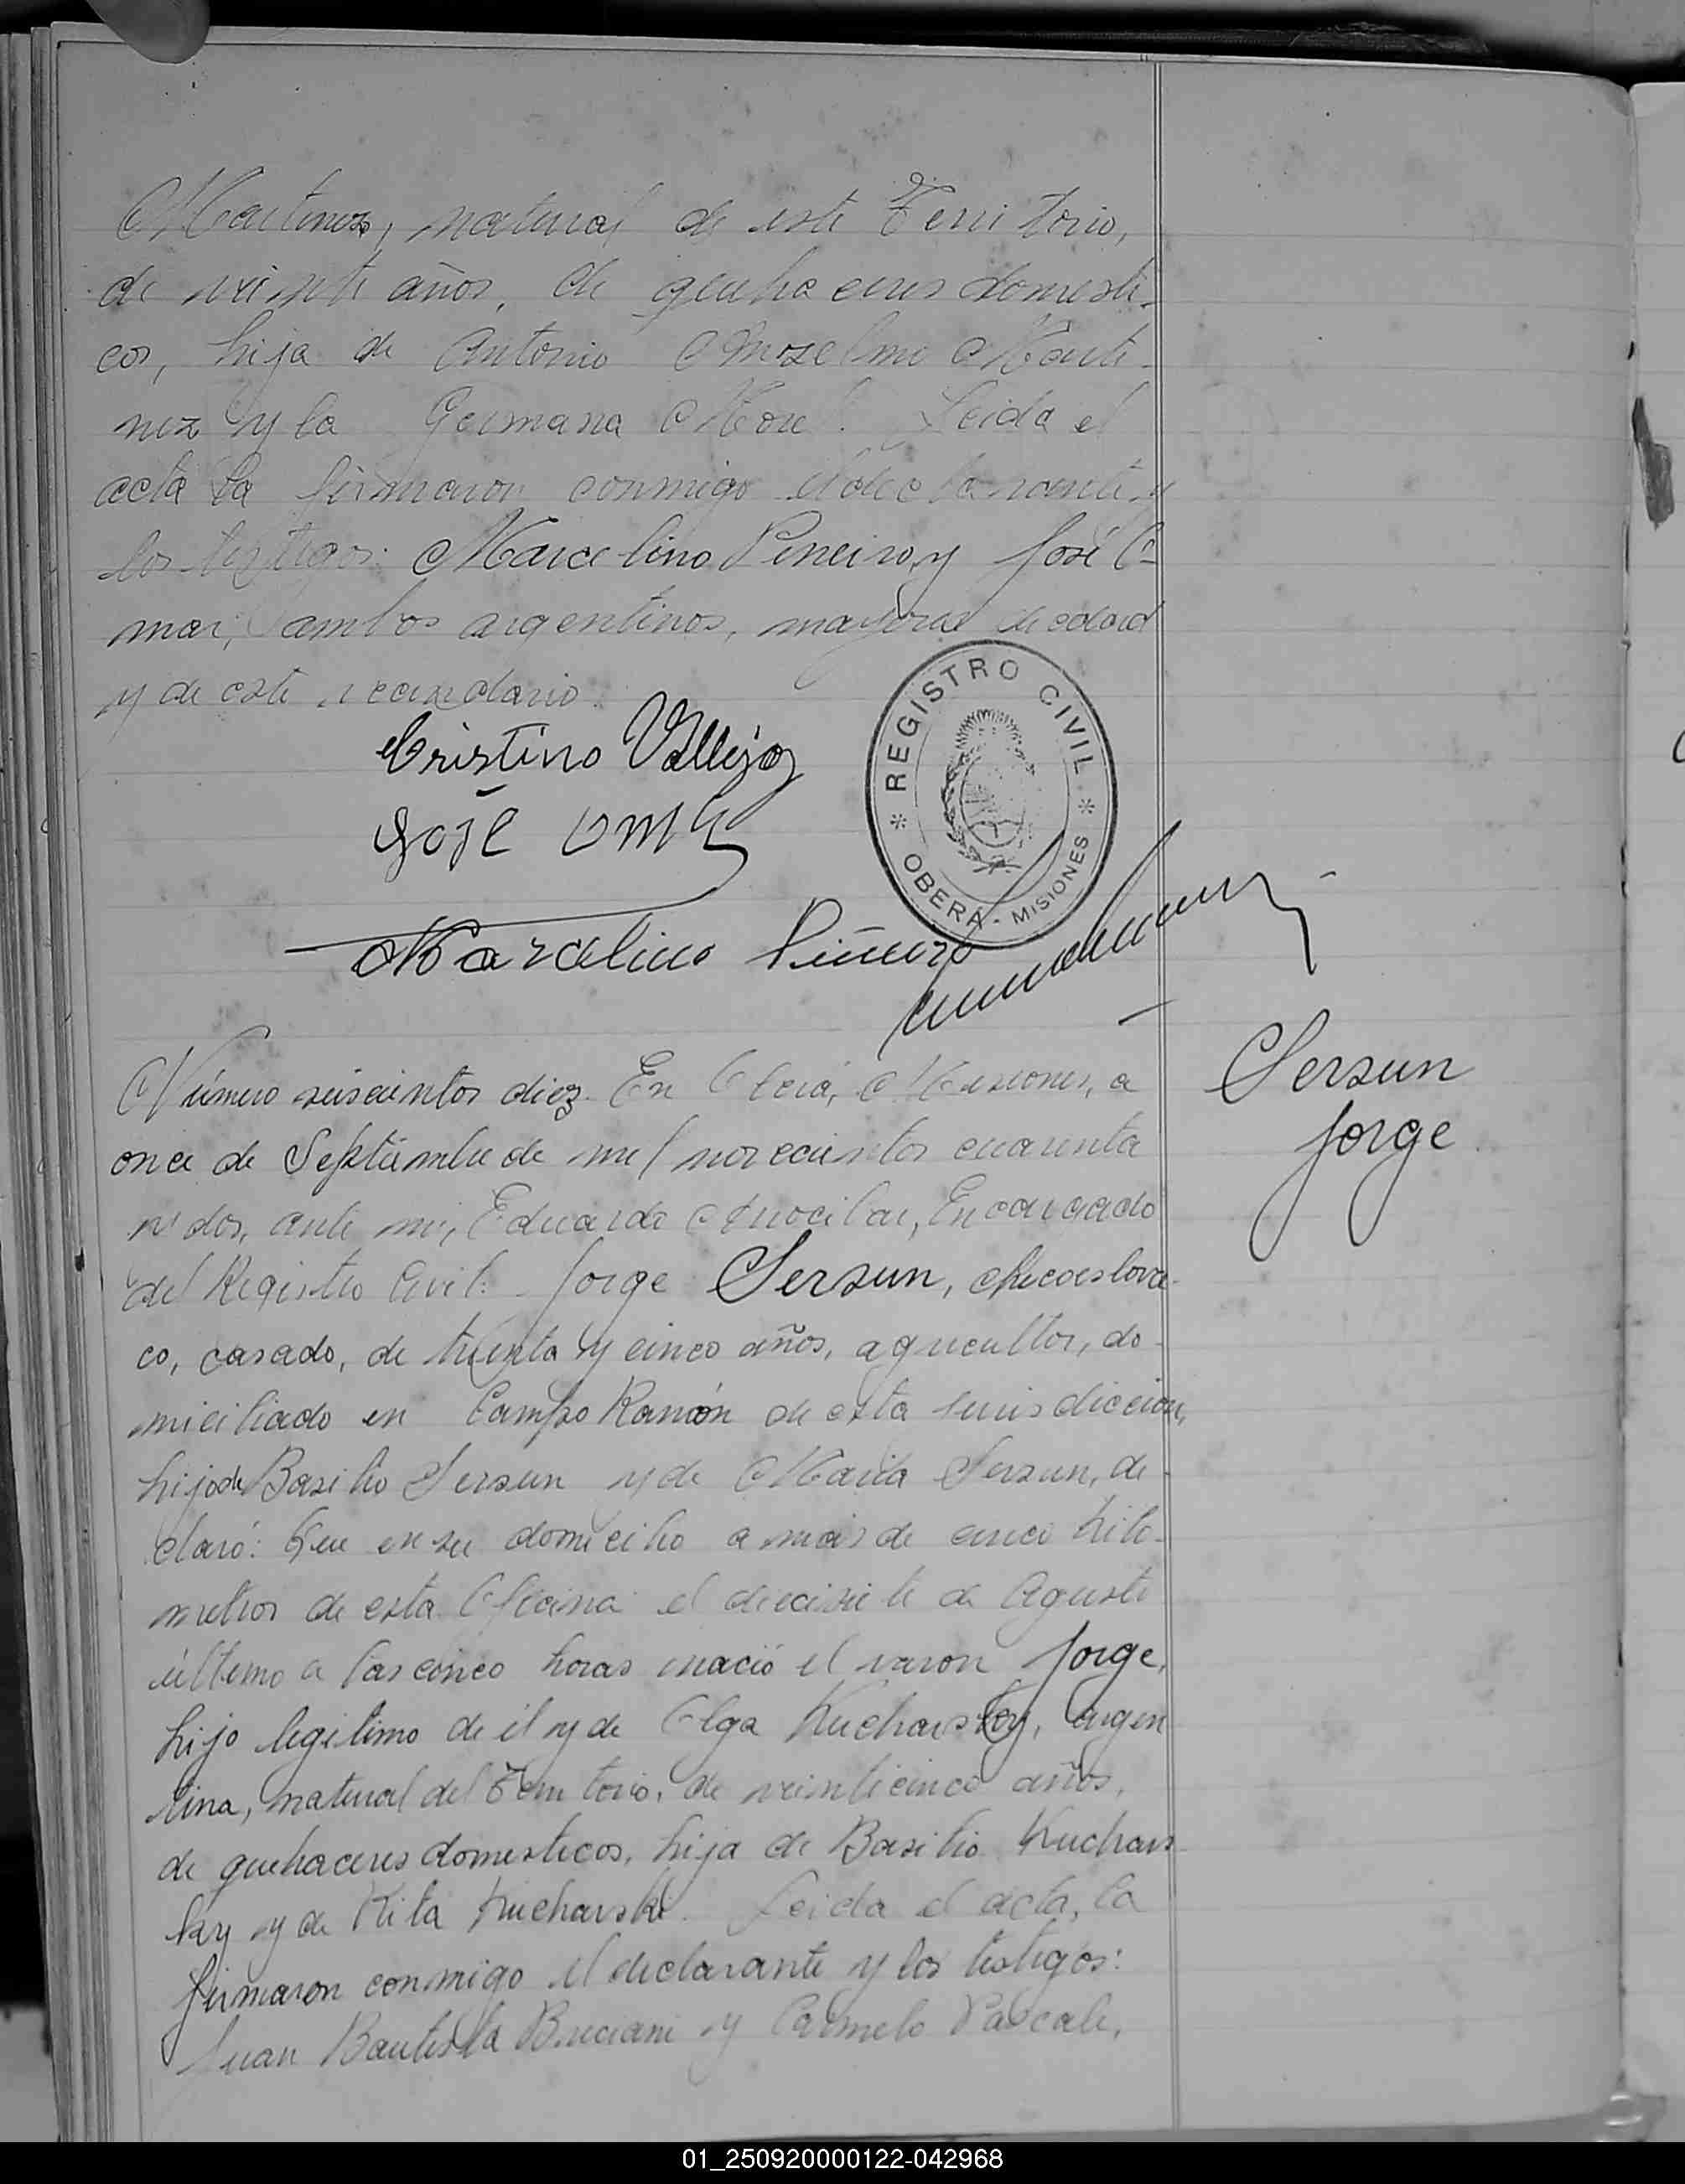 Martinez, natural de este Territorio,
de veinte años, de quehaceres domesti-
cos, hija de Antonio Anselmo Marti-
nez y la Germana Morel. Leida el
acta la firmaron conmigo el declarante y
los testigos: Marcelino Pineiro, y José O-
mar, ambos argentinos, mayores de edad
y de este vecindario.
Cristino Vallejos
José
REGISTRO CIVIL
OBERÁ - MISIONES
Marcelino Piñeiro
Número seiscientos diez. En Oberá, Misiones, a
once de Septiembre de mil novecientos cuarenta
y dos, ante mi, Eduardo Encargado
del Registro Civil: Jorge Sersun, checoeslova-
co, casado, de treinta y cinco años, agricultor, do-
miciliado en Campo Ramón de esta jurisdiccion,
hijo de Basilio Sersun y de Maria Sersun, de-
claró: Que en su domicilio a más de cinco kilo-
metros de esta Oficina el diecisiete de Agosto
último a las cinco horas nació el varon Jorge,
hijo legitimo de él y de Olga Kucharsky, argen
tina, natural del Territorio, de veinticinco años,
de quehaceres domesticos, hija de Basilio Kuchars
ky y de Rita Kucharski. Leida el acta, la
firmaron conmigo el declarante y los testigos:
Juan Bautista Bruciani y Carmelo Pascale,
Sersun
Jorge
01_250920000122-042968